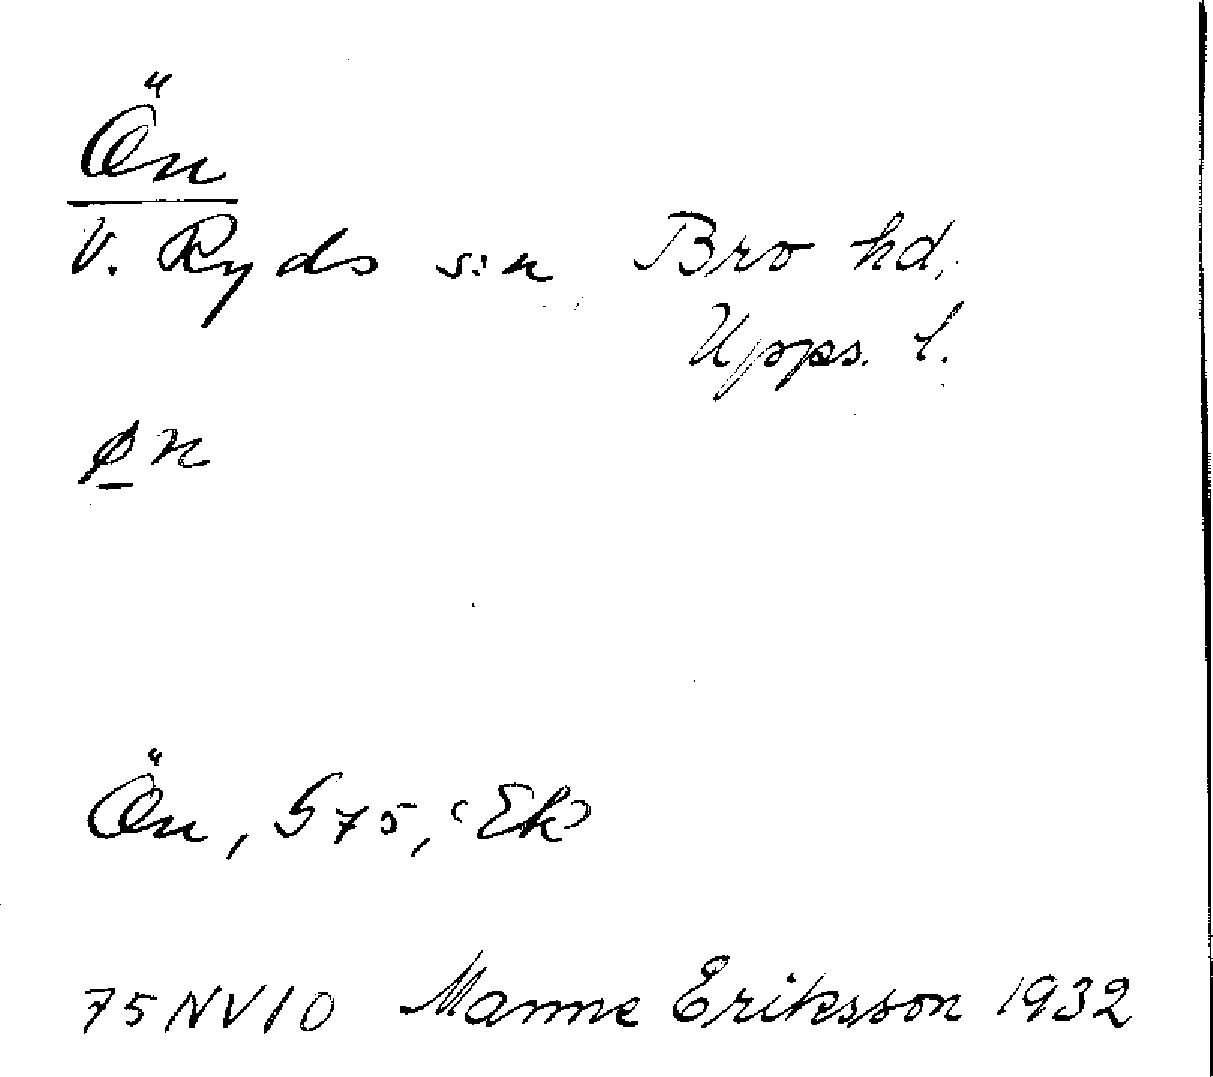 Ön
V. Ryds sn Bro hd,
Upps. l.
ø̱n
Ön, G 75, (Ek)
75NV10 Manne Eriksson 1932